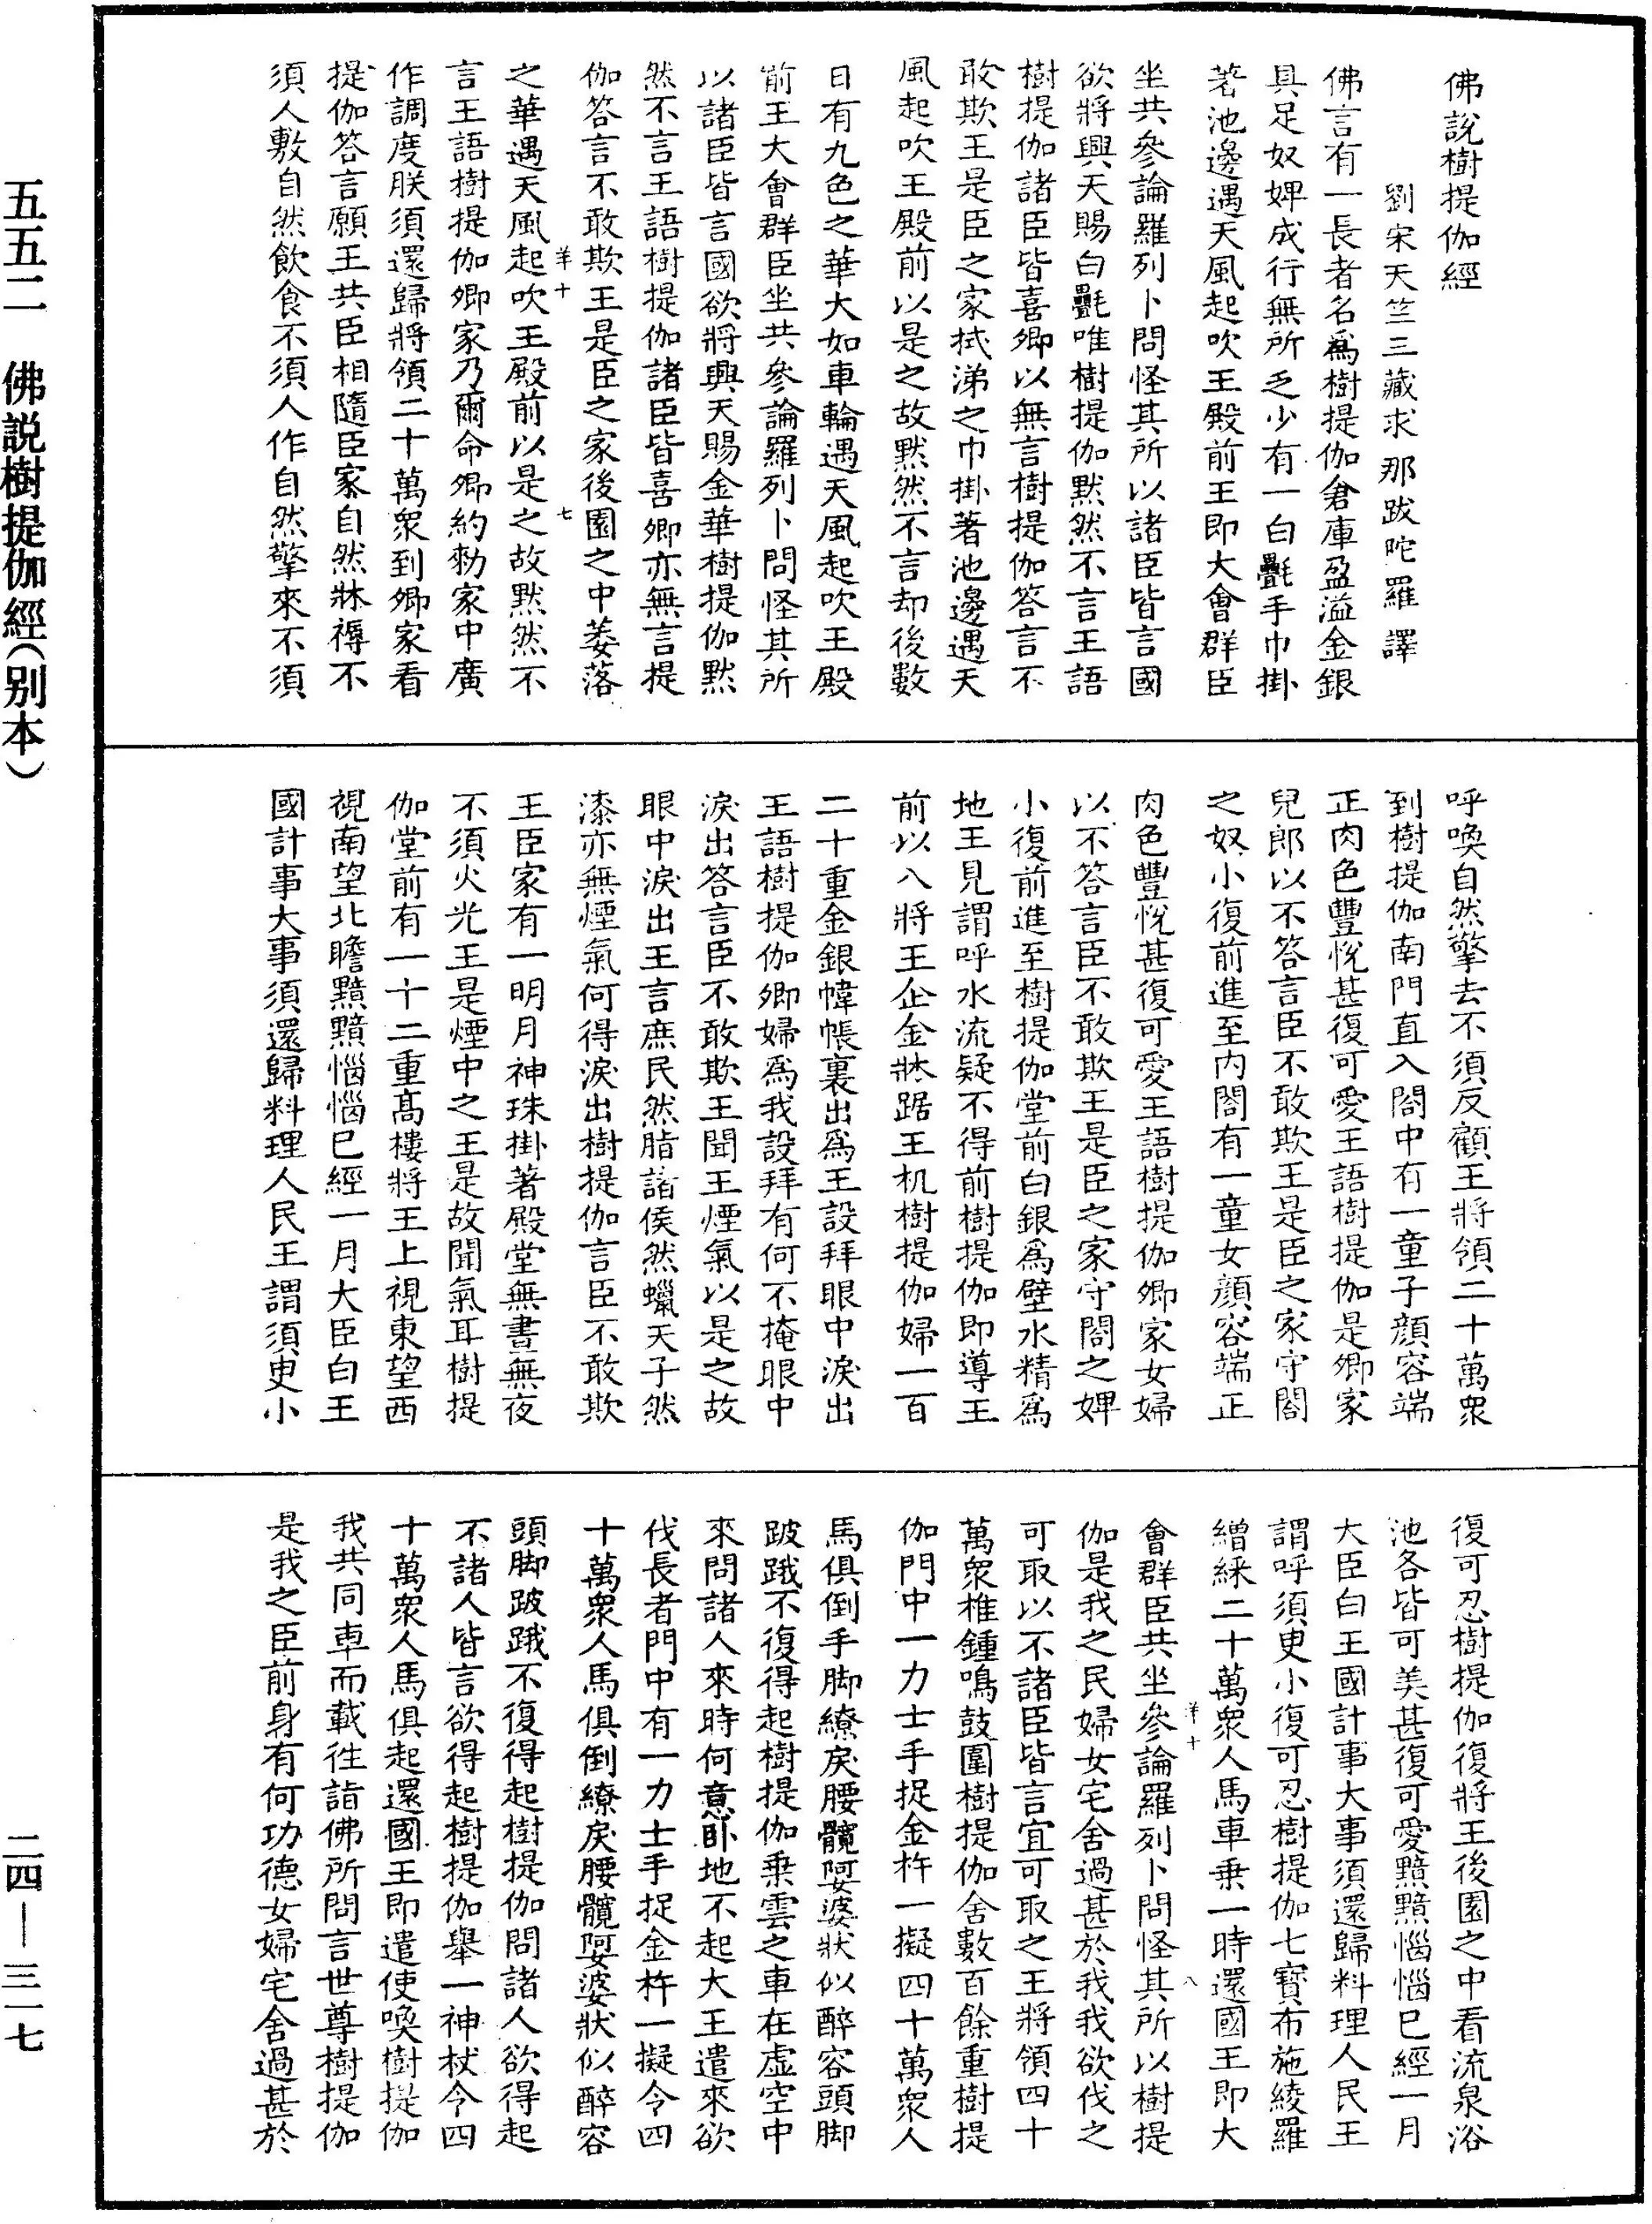 佛說樹提伽經
劉宋天竺三藏求那跋陀羅 譯
佛言有一長者名爲樹提伽倉庫盈溢金銀
具足奴婢成行無所乏少有一白㲲手巾掛
著池邊遇天風起吹王殿前王即大會群臣
坐共參論羅列卜問怪其所以諸臣皆言國
欲將興天賜白㲲唯樹提伽默然不言王語
樹提伽諸臣皆喜卿以無言樹提伽答言不
敢欺王是臣之家拭涕之巾掛著池邊遇天
風起吹王殿前以是之故默然不言却後數
日有九色之華大如車輪遇天風起吹王殿
前王大會群臣坐共參論羅列卜問怪其所
以諸臣皆言國欲將興天賜金華樹提伽默
然不言王語樹提伽諸臣皆喜卿亦無言提
伽答言不敢欺王是臣之家後園之中萎落
羊十 七
之華遇天風起吹王殿前以是之故默然不
言王語樹提伽卿家乃爾命卿約勑家中廣
作調度朕須還歸將領二十萬衆到卿家看
提伽答言願王共臣相隨臣家自然牀褥不
須人敷自然飲食不須人作自然擎來不須
呼喚自然擎去不須反顧王將領二十萬衆
到樹提伽南門直入閤中有一童子顏容端
正肉色豐悅甚復可愛王語樹提伽是卿家
兒郎以不答言臣不敢欺王是臣之家守閤
之奴小復前進至内閤有一童女顏容端正
肉色豐悅甚復可愛王語樹提伽卿家女婦
以不答言臣不敢欺王是臣之家守閤之婢
小復前進至樹提伽堂前白銀爲壁水精爲
地王見謂呼水流疑不得前樹提伽即導王
前以入將王企金牀踞王机樹提伽婦一百
二十重金銀幃帳裏出爲王設拜眼中淚出
王語樹提伽卿婦爲我設拜有何不掩眼中
淚出答言臣不敢欺王聞王煙氣以是之故
眼中淚出王言庶民然脂諸侯然蠟天子然
漆亦無煙氣何得淚出樹提伽言臣不敢欺
王臣家有一明月神珠掛著殿堂無晝無夜
不須火光王是煙中之王是故聞氣耳樹提
伽堂前有一十二重髙樓將王上視東望西
視南望北瞻黤黤惱惱已經一月大臣白王
國計事大事須還歸料理人民王謂須臾小
復可忍樹提伽復將王後園之中看流泉浴
池各皆可美甚復可愛黤黤惱惱已經一月
大臣白王國計事大事須還歸料理人民王
謂呼須臾小復可忍樹提伽七寶布施綾羅
繒綵二十萬衆人馬車乗一時還國王即大
羊十 八
會群臣共坐參論羅列卜問怪其所以樹提
伽是我之民婦女宅舍過甚於我我欲伐之
可取以不諸臣皆言宜可取之王將領四十
萬衆椎鍾鳴鼓圍樹提伽舍數百餘重樹提
伽門中一力士手捉金杵一擬四十萬衆人
馬俱倒手脚繚戾腰髖婴婆狀似醉容頭脚
跛踒不復得起樹提伽乗雲之車在虛空中
來問諸人來時何意卧地不起大王遣來欲
伐長者門中有一力士手捉金杵一擬令四
十萬衆人馬俱倒繚戾腰髖婴婆狀似醉容
頭脚跛踒不復得起樹提伽問諸人欲得起
不諸人皆言欲得起樹提伽舉一神杖令四
十萬衆人馬俱起還國王即遣使喚樹提伽
我共同車而載往詣佛所問言世尊樹提伽
是我之臣前身有何功德女婦宅舍過甚於
五五二 佛説樹提伽經(別本)
二四—三一七